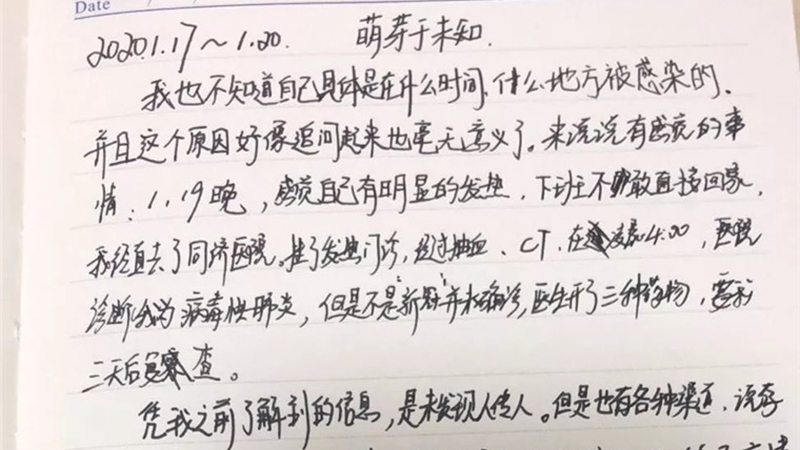 Date
2020.1.17～1.20. 萌芽于未知.
我也不知道自己具体是在什么时间、什么地方被感染的.
并且这个原因好像追问起来也毫无意义了。来说说有感觉的事
情：1.19晚，感觉自己有明显的发热，下班不敢直接回家，
我径直去了同济医院。挂了发热门诊，经过抽血、CT，在凌晨4:00，医院
诊断我为病毒性肺炎，但是不是“新冠”并未确诊，医生开了三种药物，要我
三天后复查。
凭我之前了解到的信息，是未发现人传人。但是也有各种渠道，说存